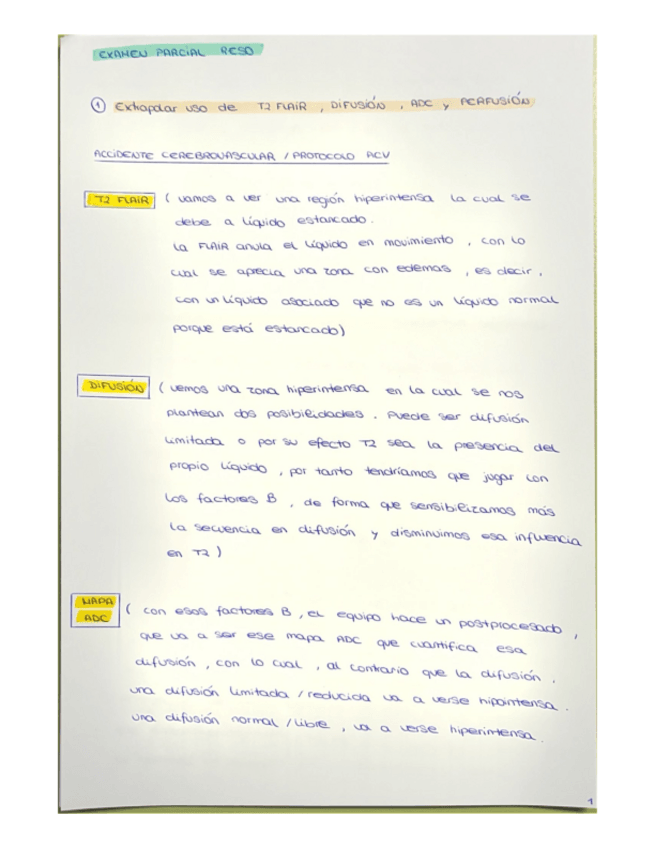 EXAMEN PARCIAL RESO
① Extrapolar uso de T2 FLAIR, DIFUSIÓN, ADC y PERFUSIÓN
ACCIDENTE CEREBROVASCULAR / PROTOCOLO ACV
T2 FLAIR (vamos a ver una región hiperintensa la cual se
debe a líquido estancado.
La FLAIR anula el líquido en movimiento, con lo
cual se aprecia una zona con edemas, es decir,
con un líquido asociado que no es un líquido normal
porque está estancado)
DIFUSIÓN (vemos una zona hiperintensa en la cual se nos
plantean dos posibilidades. Puede ser difusión
limitada o por su efecto T2 sea la presencia del
propio líquido, por tanto tendríamos que jugar con
los factores B, de forma que sensibilizamos más
la secuencia en difusión y disminuimos esa influencia
en T2)
MAPA
ADC (con esos factores B, el equipo hace un postprocesado,
que va a ser ese mapa ADC que cuantifica esa
difusión, con lo cual, al contrario que la difusión,
una difusión limitada / reducida va a verse hipointensa.
una difusión normal / libre, va a verse hiperintensa.
1